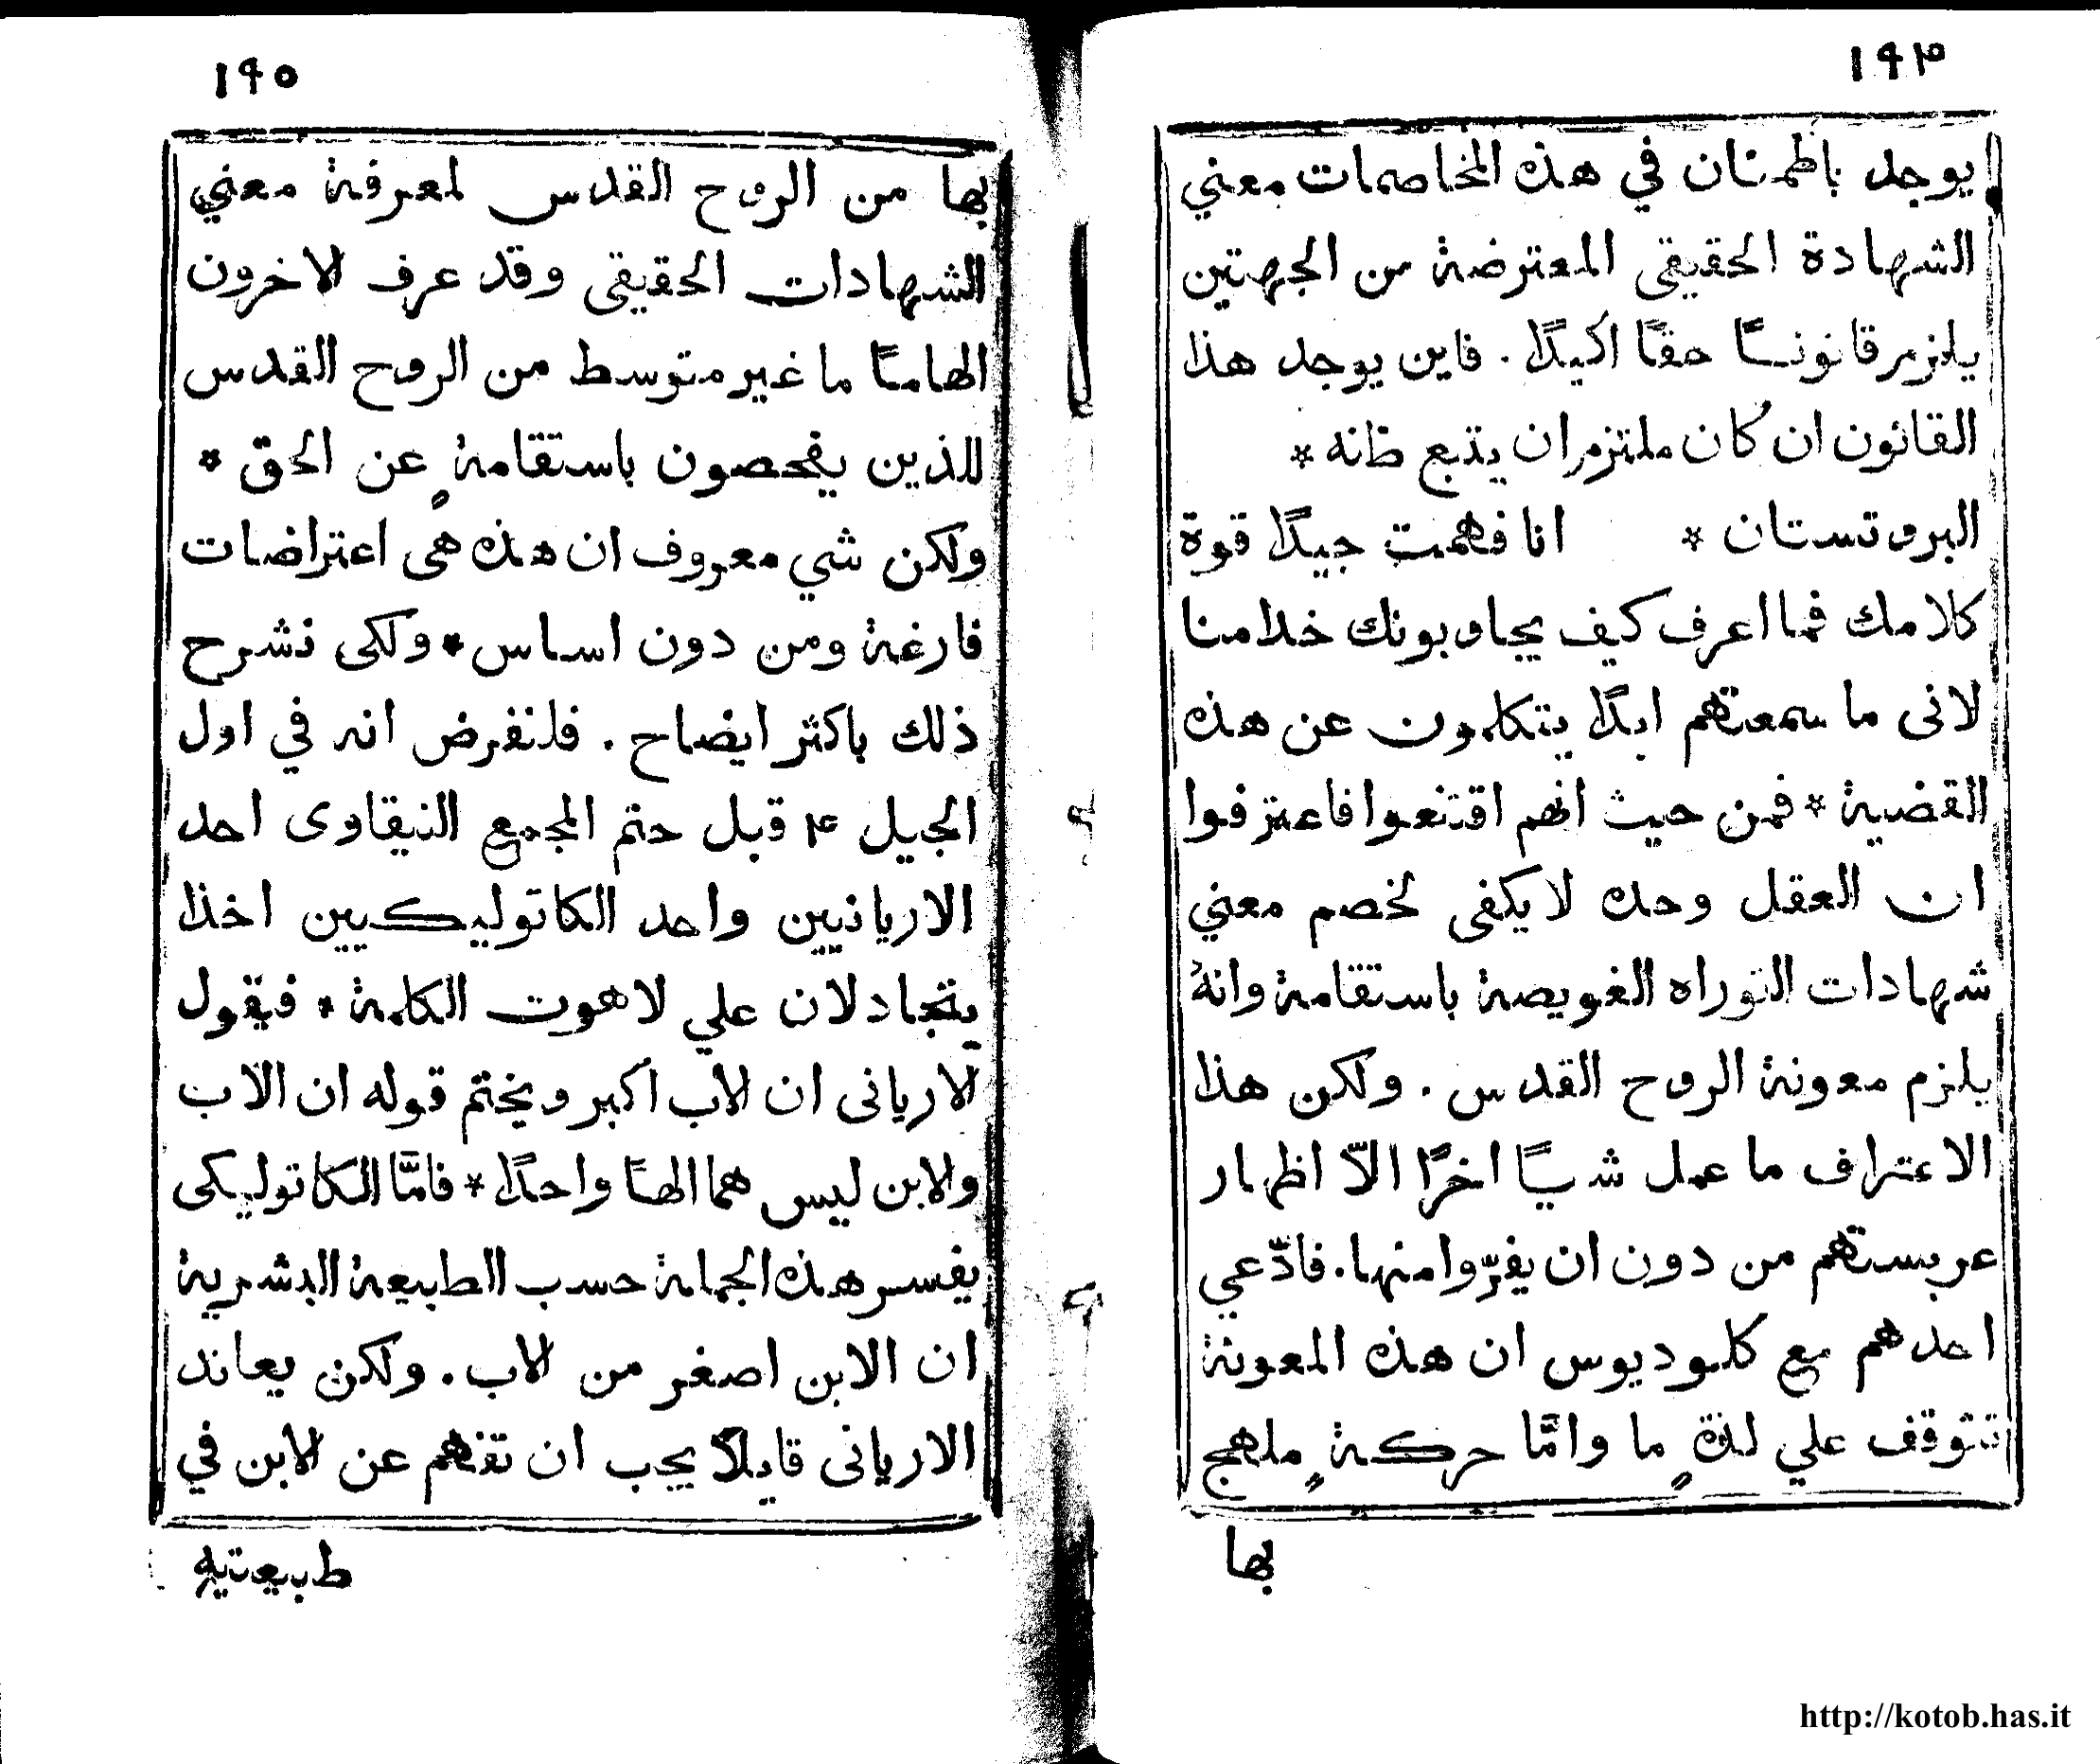 ١٩٤
يوجد باطمنان في هذه المخاصمات معني
الشهادة الحقيقى المعترضة من الجهتين
يلزمر قانونـًا حقًا اكيدًا. فاين يوجد هذا
القانون ان كان ملتزمر ان يتبع ظنه *
البروتستان * انا فهمت جيدًا قوة
كلامك فما اعرف كيف يجاوبونك خدامنا
لانى ما سمعتهم ابدًا يتكلمون عن هذه
القضية * فمن حيث انهم اقتنعوا فاعترفوا
ان العقل وحده لا يكفى لخصم معني
شهادات التوراه الغويصة باستقامة وانهُ
يلزم معونة الروح القدس. ولكن هذا
الاعتراف ما عمل شيـًا اخرًا الّا اظهار
عربستهم من دون ان يفرّوا منها. فادّعي
احدهم مع كلوديوس ان هذه المعونة
تتوقف علي لذةٍ ما وامَّا حركةٍ ملهج
بها
١٩٥
بها من الروح القدس لمعرفة معني
الشهادات الحقيقى وقد عرف الاخرون
الهامـًا ما غير متوسط من الروح القدس
للذين يفحصون باستقامةٍ عن الحق *
ولكن شي معروف ان هذه هى اعتراضات
فارغة ومن دون اساس * ولكى نشرح
ذلك باكثر ايضاح. فلنفرض انه في اول
الجيل ٤ قبل حتم المجمع النيقاوى احد
الاريانيين واحد الكاتوليكيين اخذا
يتجادلان علي لاهوت الكلمة * فيقول
الاريانى ان الاب اكبر ويختم قوله ان الاب
والابن ليس هما الهـًا واحدًا * فامَّا الكاتوليكى
يفسر هذه الجملة حسب الطبيعة البشرية
ان الابن اصغر من الاب. ولكن يعاند
الاريانى قايلًا يجب ان تفهم عن الابن في
طبيعتيه
http://kotob.has.it